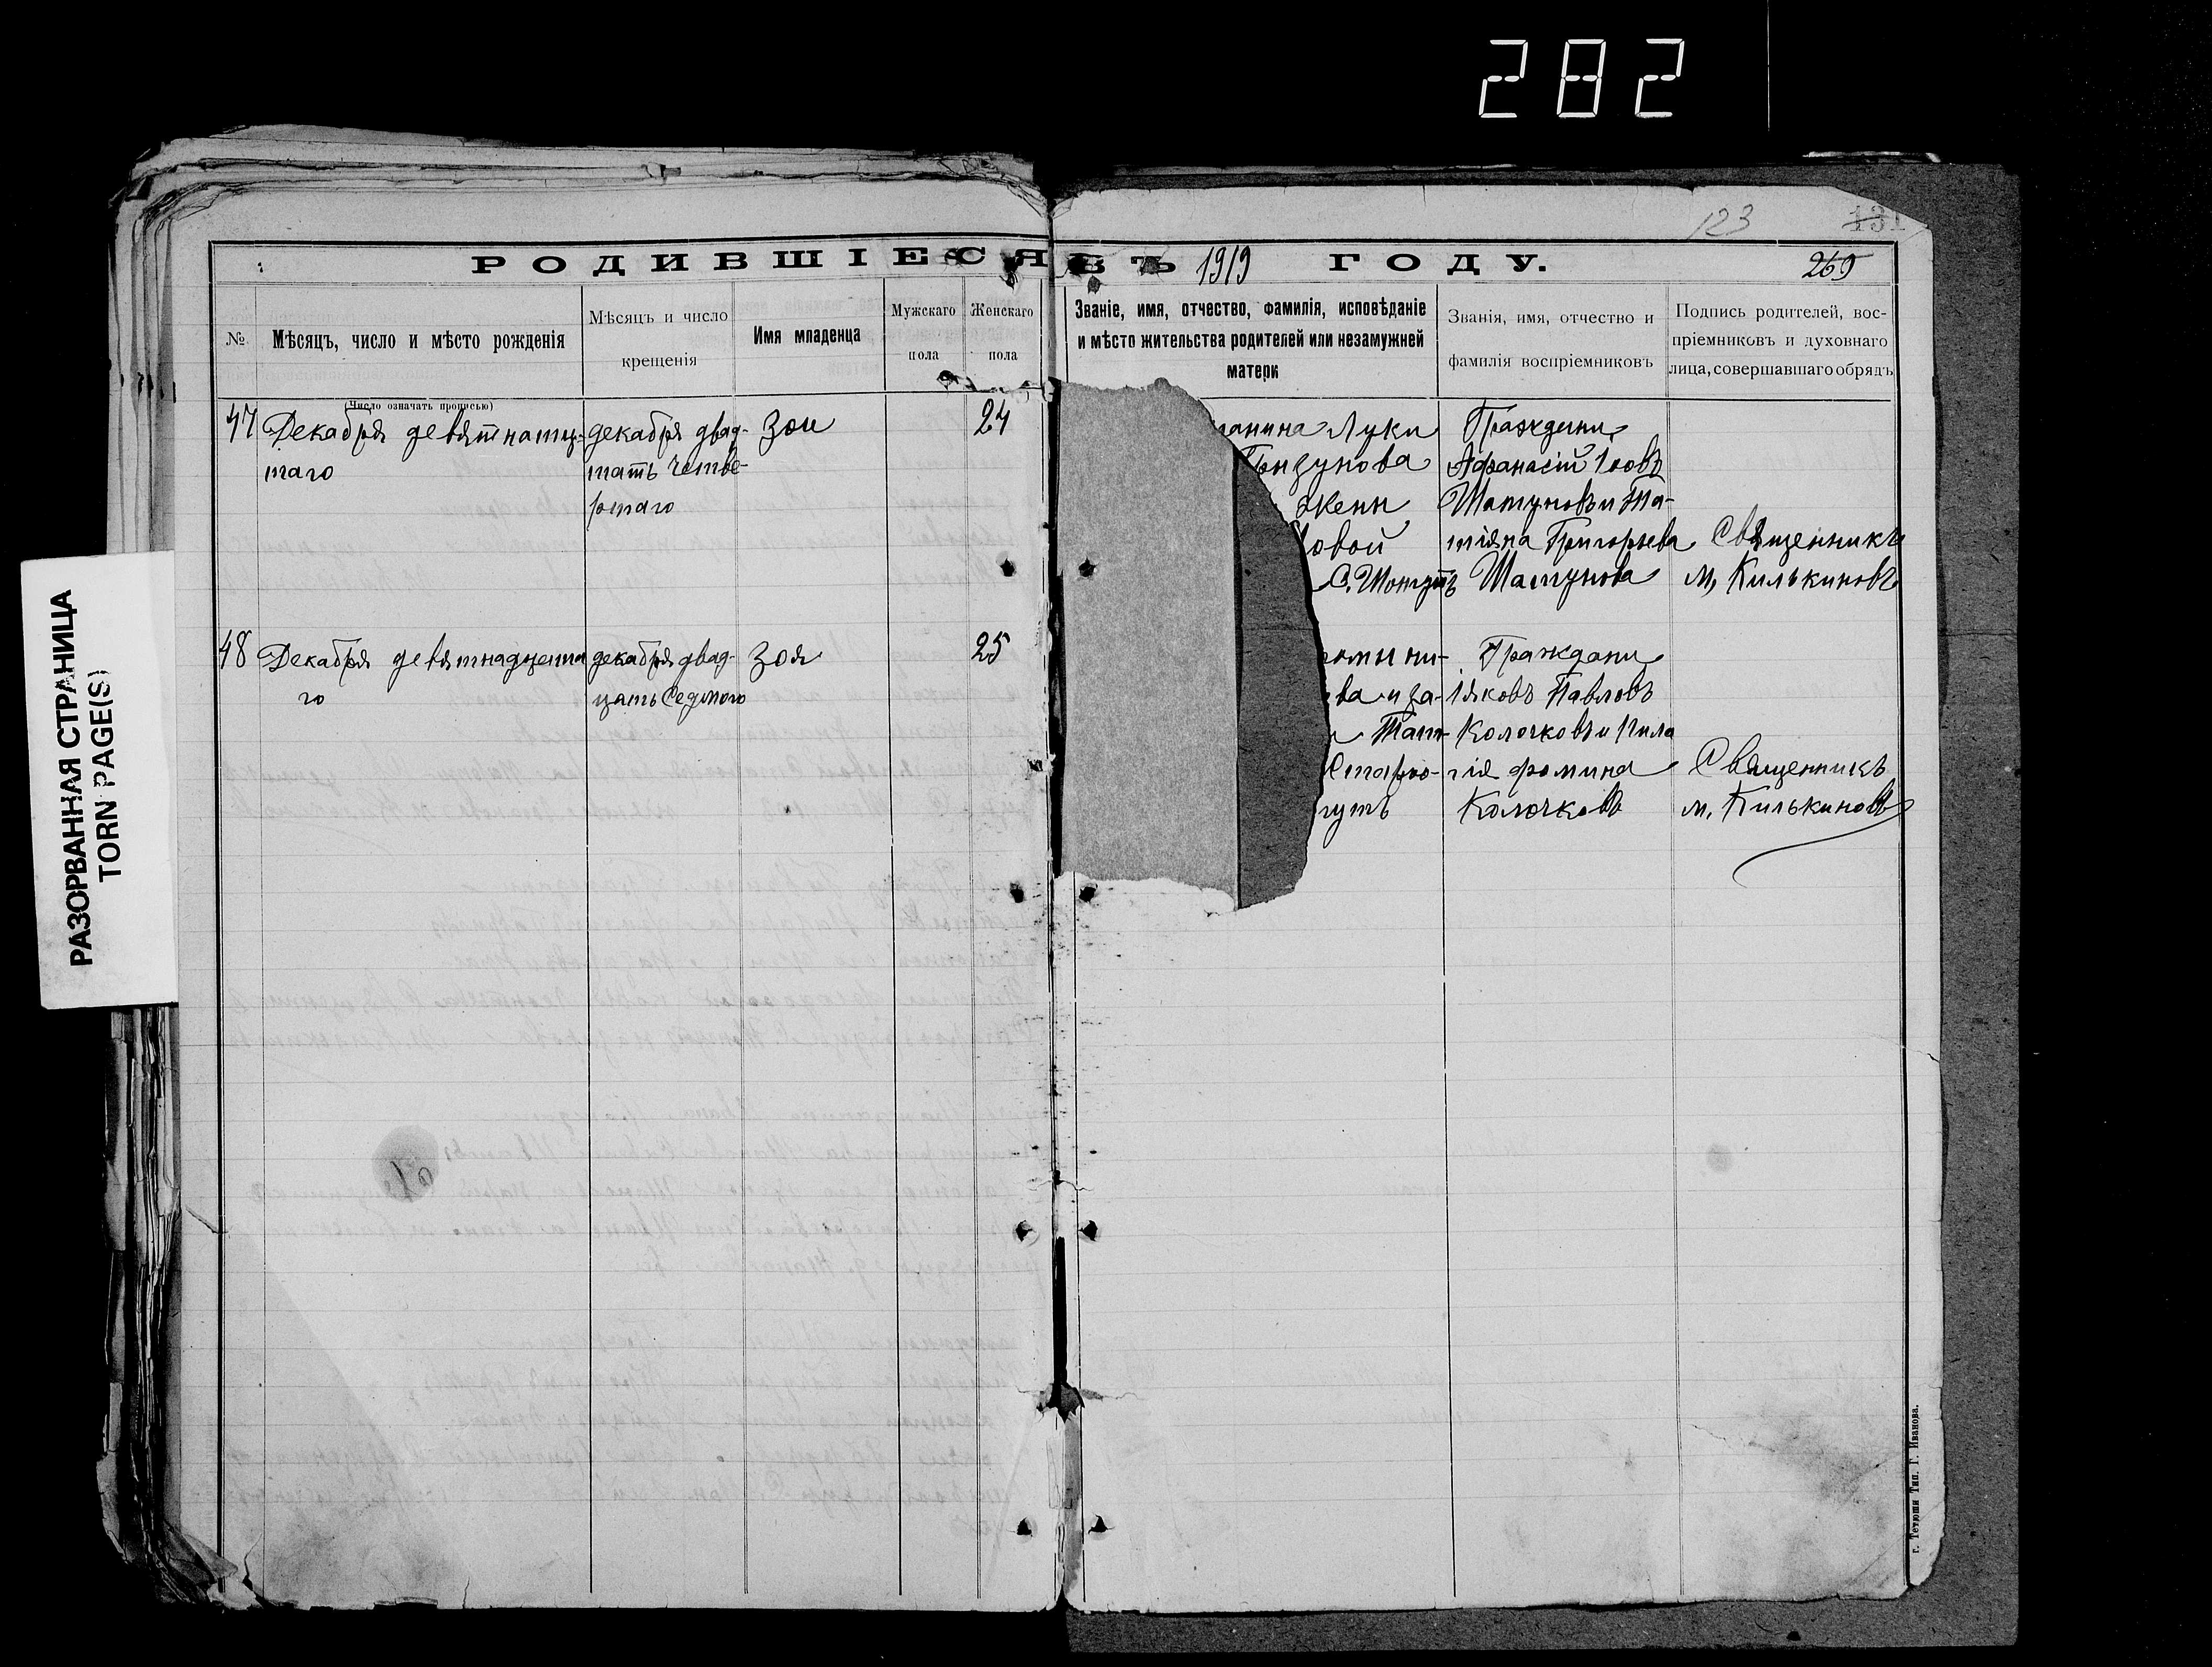 282
123
131
РОДИВШІЕСЯ ВЪ 1919 ГОДУ.
269
№
Мѣсяцъ, число и мѣсто рожденія
Мѣсяцъ и число
крещенія
Имя младенца
Мужскаго
пола
Женскаго
пола
Званіе, имя, отчество, фамилія, исповѣданіе
и мѣсто жительства родителей или незамужней
матери
Званія, имя, отчество и
фамилія воспріемниковъ
Подпись родителей, вос-
пріемниковъ и духовнаго
лица, совершавшаго обрядъ
(Число означать прописью)
47
Декабря девятнатц-
таго
декабря двад-
тать четве-
ртаго
Зои
24
Луки
Жены
овой
С. Монгутъ
Граждани
Афанасій Іовъ
Шатуновъ и Та-
тіяна Григорьева
Шатунова
Священникъ
М. Килькиновъ
48
Декабря девятнадцата
го
декабря двад-
цать седмого
Зоя
25
омы ни-
ва и за-
Тат-
Старо-
гутъ
Граждани
Іяковъ Павловъ
Колочковъ и Пила
гія фомина
Колочковъ
Священникъ
М. Килькиновъ
РАЗОРВАННАЯ СТРАНИЦА
TORN PAGE(S)
г. Тетюши Тип. Г. Иванова.